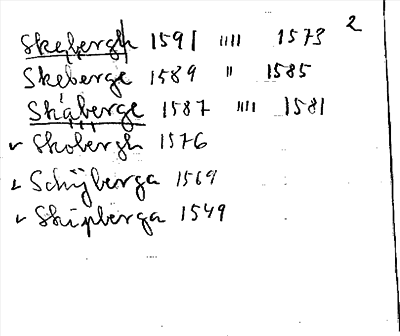 2
Skębergh 1591 '''' 1573
Skeberge 1589 " 1585
Skąberge 1587 '''' 1581
Skobergh 1576
Schÿberga 1569
Skipberga 1549